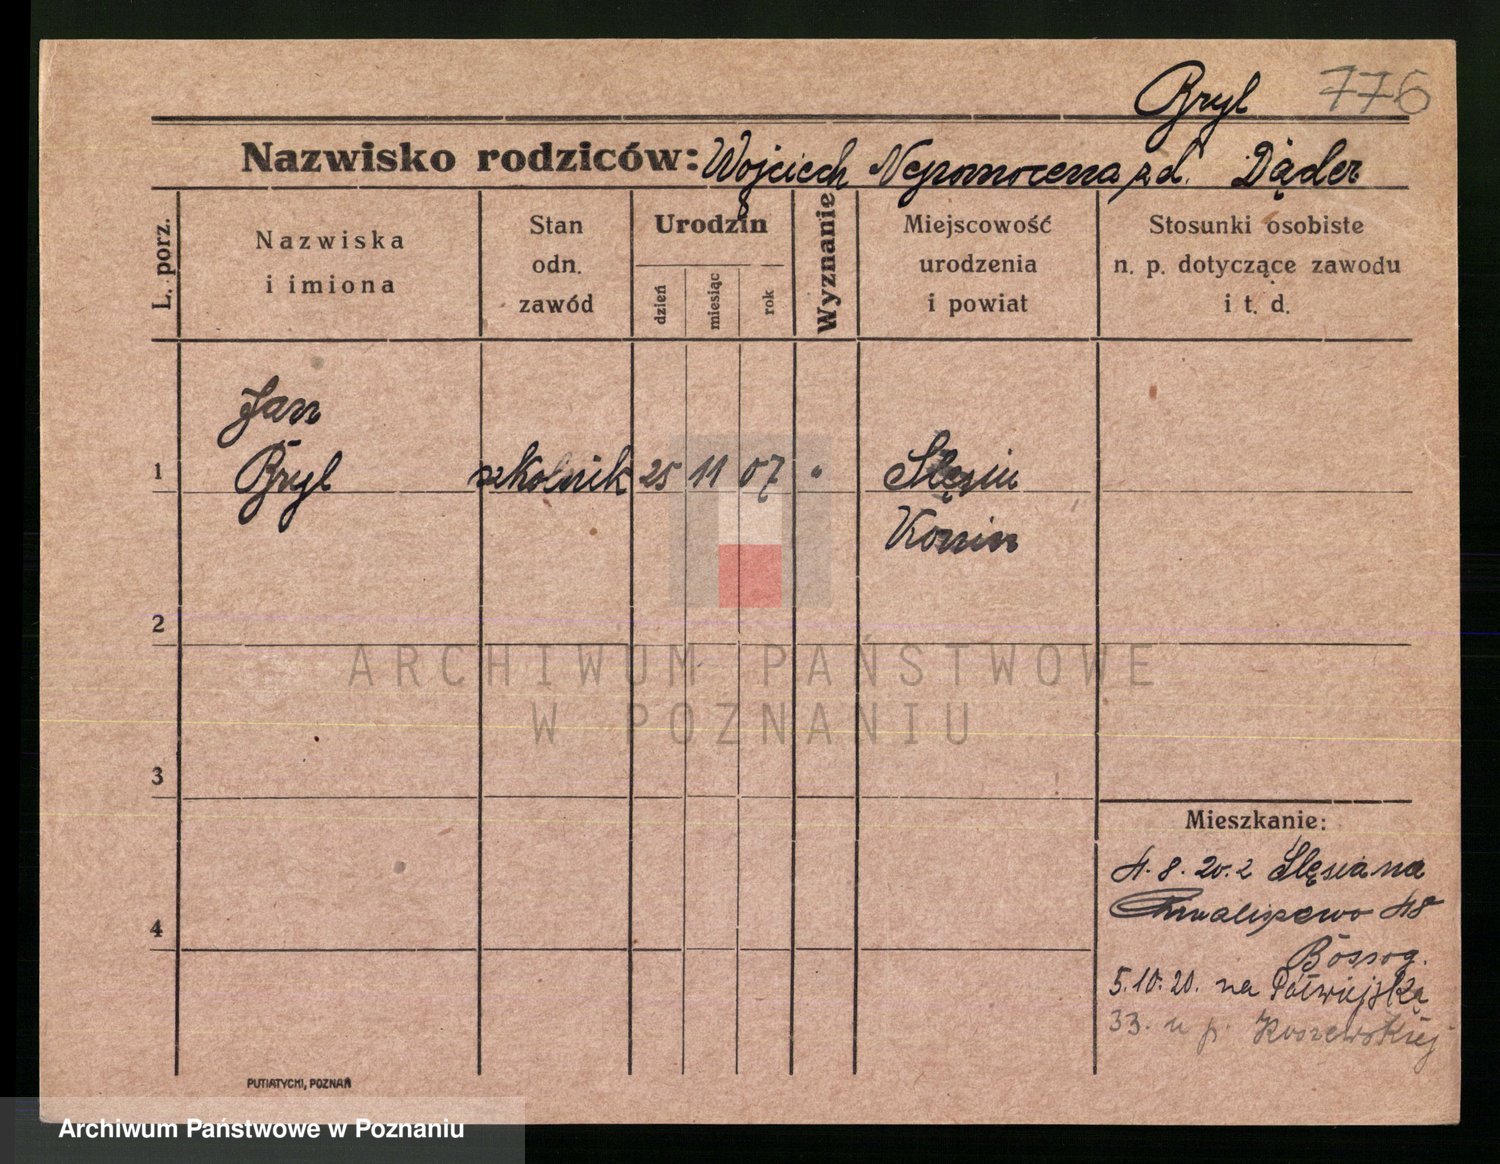 Bryl 776
Nazwisko rodziców: Wojciech Nepomocena z d. Dąder
L. porz.
Nazwiska
i imiona
Stan
odn.
zawód
Urodzin
dzień
miesiąc
rok
Wyznanie
Miejscowość
urodzenia
i powiat
Stosunki osobiste
n. p. dotyczące zawodu
i t. d.
Jan
1 Bryl szkolnik 25 11 07 " Slęsin
Konin
2
ARCHIWUM PAŃSTWOWE
W POZNANIU
3
Mieszkanie:
4. 8. 20. z Slęsina na
Chwaliszewo 48
4
5.10.20. na Półwiejską
33. u p. Koszewskiej
PUTIATYCKI, POZNAŃ
Archiwum Państwowe w Poznaniu